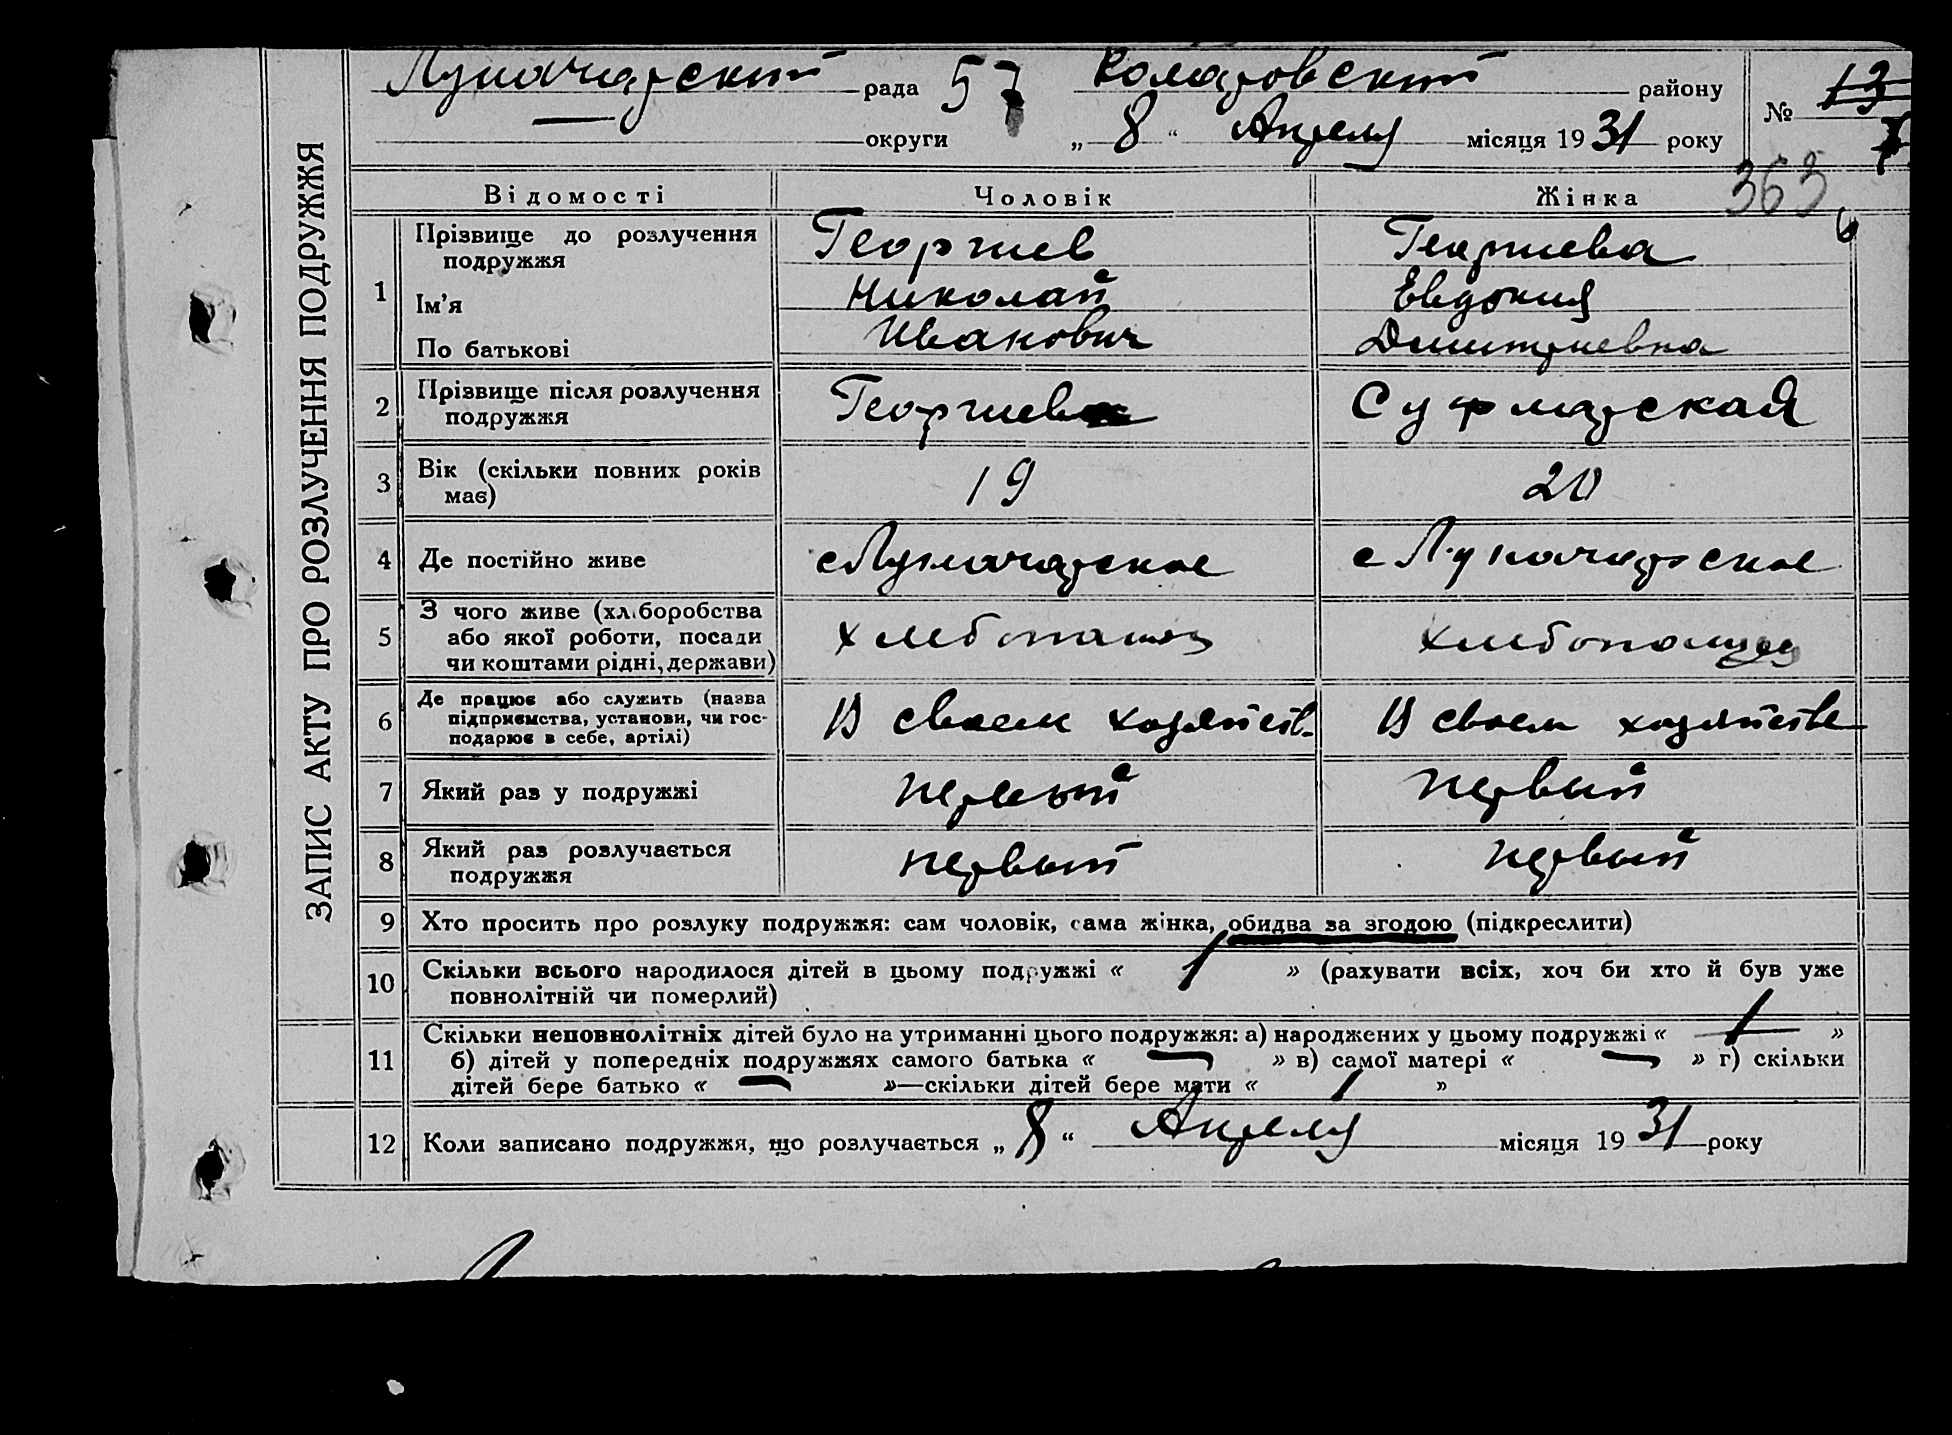 ЗАПИС АКТУ ПРО РОЗЛУЧЕННЯ ПОДРУЖЖЯ
Луначарский рада 57 Коларовский району
округи „ 8 “ Апреля місяця 1931 року
№ 13
363
Відомості Чоловік Жінка
1 Прізвище до розлучення подружжя Георгиев Георгиева
Ім'я Николай Евдокия
По батькові Иванович Дмитриевна
2 Прізвище після розлучення подружжя Георгиев
3 Вік (скільки повних років має) 19 20
4 Де постійно живе с Луначарское с Луначарское
5 З чого живе (хліборобства або якої роботи, посади чи коштами рідні, держави) хлебопашец
6 Де працює або служить (назва підприємства, установи, чи господарює в себе, артілі) В своем хозяйств. В своем хозяйстве
7 Який раз у подружжі первый первый
8 Який раз розлучається подружжя первый первый
9 Хто просить про розлуку подружжя: сам чоловік, сама жінка, обидва за згодою (підкреслити)
10 Скільки всього народилося дітей в цьому подружжі « 1 » (рахувати всіх, хоч би хто й був уже
повнолітній чи померлий)
11 Скільки неповнолітніх дітей було на утриманні цього подружжя: а) народжених у цьому подружжі « 1 »
б) дітей у попередніх подружжях самого батька « — » в) самої матері « — » г) скільки
дітей бере батько « — »—скільки дітей бере мати « 1 »
12 Коли записано подружжя, що розлучається „ 8 “ Апреля місяця 1931 року